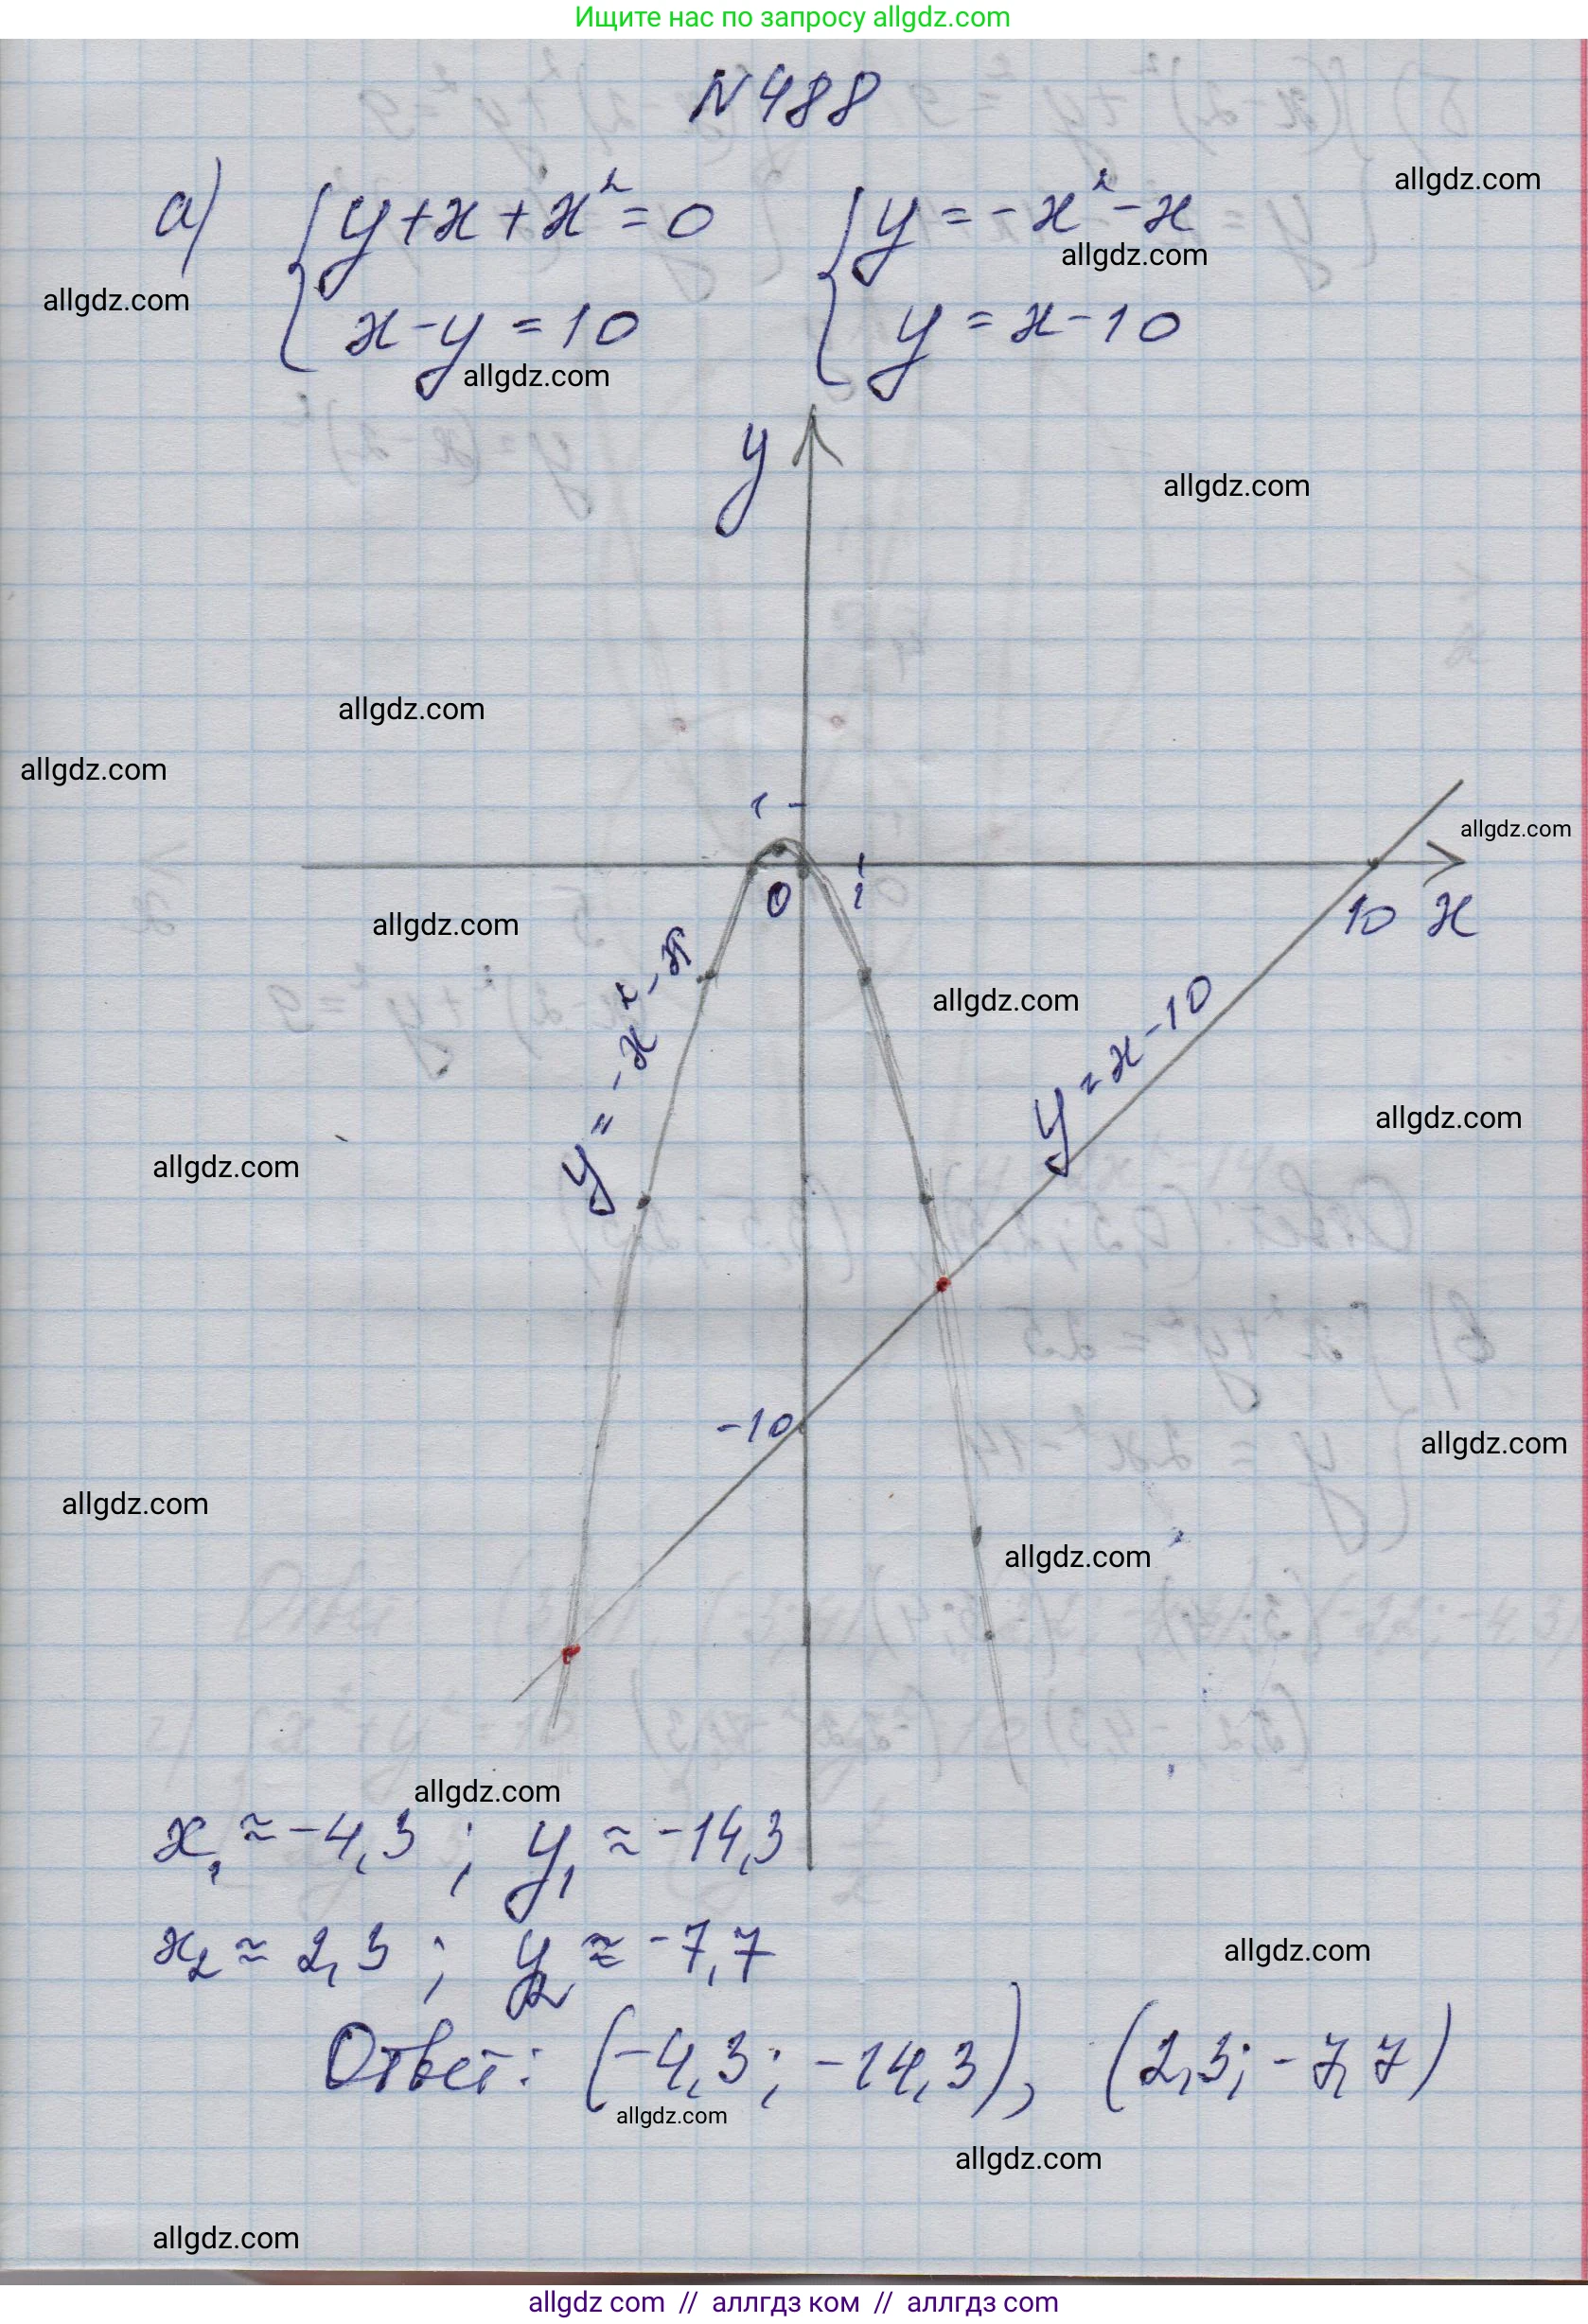 Ищите нас по запросу allgdz.com
N488
allgdz.com
а) { y + x + x² = 0 { y = -x² - x
allgdz.com
allgdz.com
x - y = 10 y = x - 10
allgdz.com
y
allgdz.com
allgdz.com
allgdz.com
1
allgdz.com
0 1 10 x
allgdz.com
y = -x² - x
allgdz.com
y = x - 10
allgdz.com
allgdz.com
-10
allgdz.com
allgdz.com
allgdz.com
allgdz.com
x₁ ≈ -4,3 ; y₁ ≈ -14,3
x₂ ≈ 2,3 ; y₂ ≈ -7,7
allgdz.com
Ответ: (-4,3; -14,3), (2,3; -7,7)
allgdz.com
allgdz.com
allgdz.com
allgdz.com // аллгдз ком // аллгдз.com